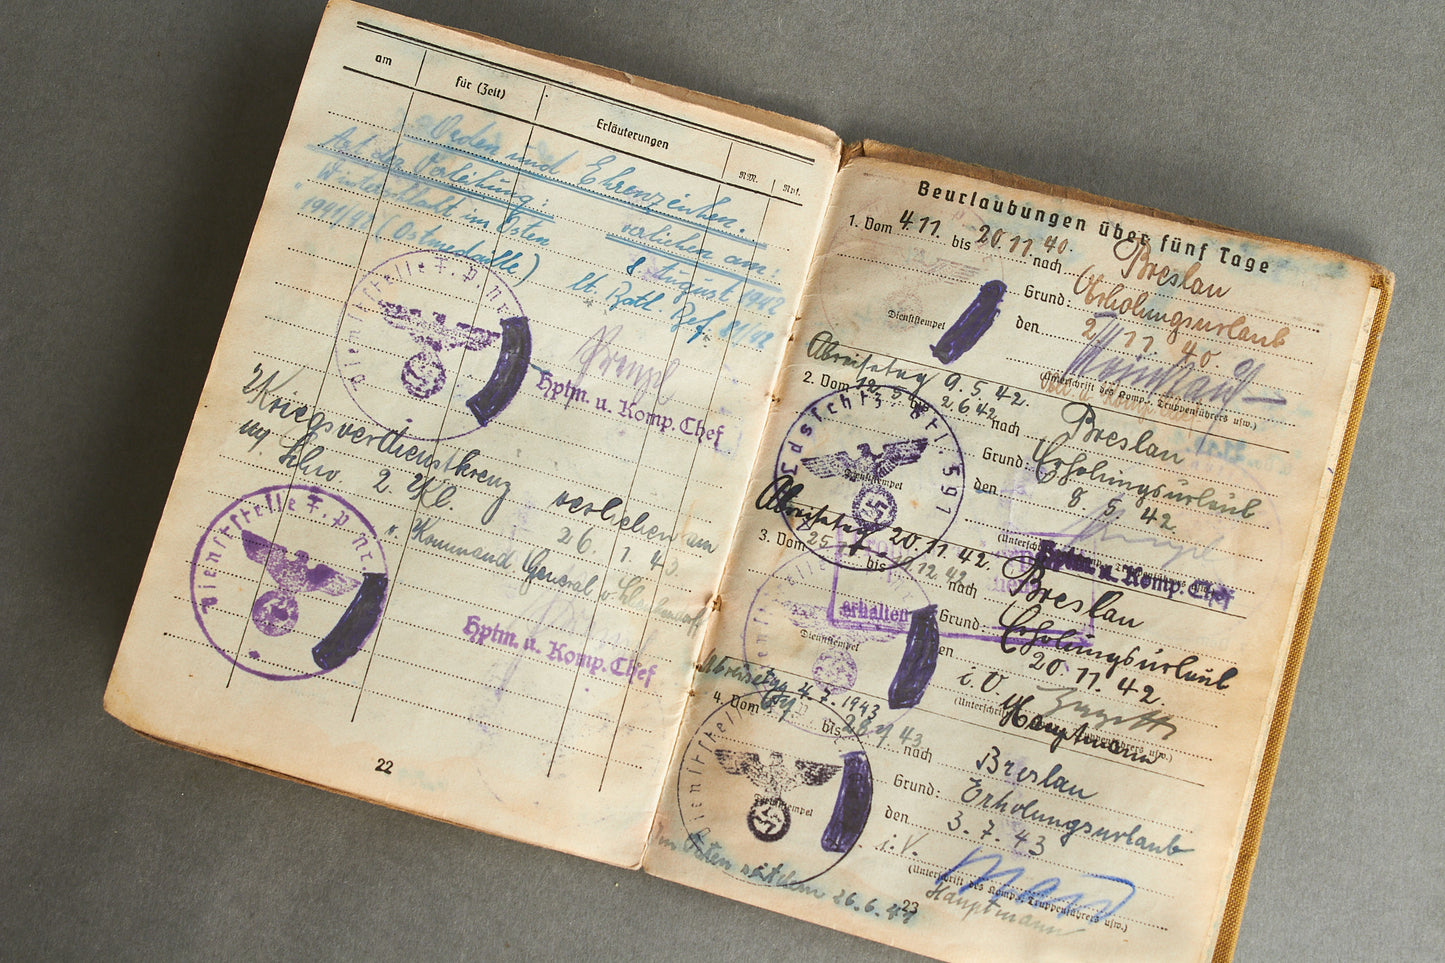 am
für (Zeit)
Erläuterungen
RM.
Rpf.
Orden und Ehrenzeichen.
Art der Verleihung:
verliehen am:
"Winterschlacht im Osten
1941/42 (Ostmedaille)
8 August 1942
lt. Batl. Bef. 81/42
Dienststelle F. P. Nr.
Hptm. u. Komp. Chef
Kriegsverdienstkreuz
m. Schw. 2. Kl. verliehen am
26. 1. 43.
v. Kommand General v.
Dienststelle F. P. Nr.
Hptm. u. Komp. Chef
22
Beurlaubungen über fünf Tage
1. Vom 4.11. bis 20.11.40.
nach Breslau
Grund: Erholungsurlaub
den 2/11.40.
Dienststempel
(Unterschrift des Komp.-, Truppenführers usw.)
Abreisetag 9.5.42.
2. Vom 12.5. bis 2.6.42 nach Breslau
Grund: Erholungsurlaub
den 8. 5. 42
Ldsschtz. Btl. 591
Dienststempel
Hptm. u. Komp. Chef
Abreisetag 20.11.42.
3. Vom 25.11 bis .12.42
nach Breslau
erhalten
Grund: Erholungsurlaub
den 20.11.42.
Dienststempel
i. V.
Hauptmann
Abreisetag 4.7.1943
4. Vom bis 28.7.43
nach Breslau
Grund: Erholungsurlaub
den 3.7.43
Dienststelle
Dienststempel
i. V.
(Unterschrift des Komp.-, Truppenführers usw.)
Hauptmann
Im Osten seit dem 26.6.41
23